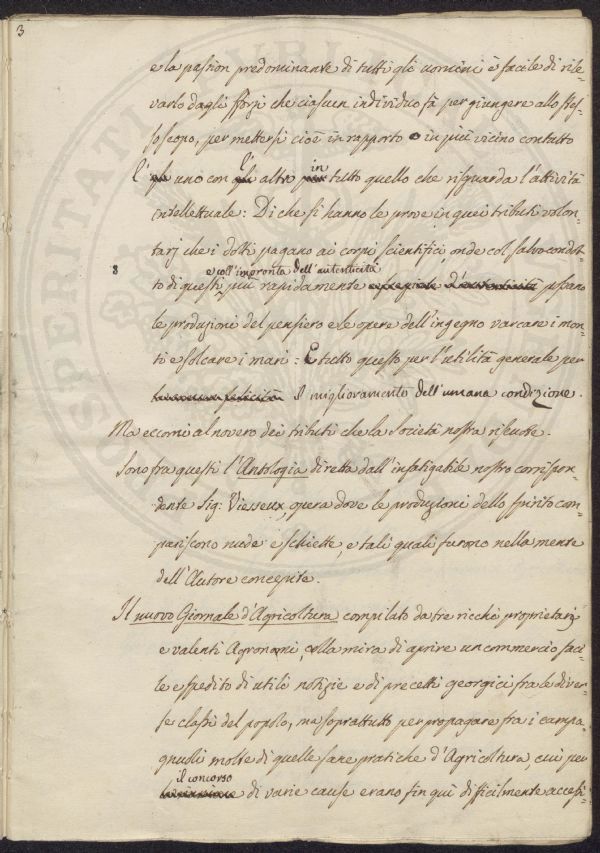 3
e la passion predominante di tutti gli uomini è facile di rile-
varlo dagli sforzi che ciascun individuo fà per giungere allo stes-
so scopo, per mettersi cioè in rapporto o in più vicino contatto
l' uno con l' altro in tutto quello che risguarda l'attività
intellettuale: Di che si hanno le prove in quei tributi volon-
tarj che i dotti pagano ai corpi scientifici onde col salvocondot-
e coll'impronta dell'autenticità
to di questi più rapidamente possano
le produzioni del pensiero e le opere dell'ingegno varcare i mon-
ti e solcare i mari: E tutto questo per l'utilità generale per
il miglioramento dell'umana condizione.
Ma eccomi al novero dei tributi che la Società nostra riscuote.
Sono fra questi l'Antologia diretta dall'infatigabile nostro corrispon-
dente Sig: Viesseux, opera dove le produzioni dello spirito com-
pariscono nude e schiette, e tali quali furono nella mente
dell'Autore concepite.
Il nuovo Giornale d'Agricoltura compilato da tre ricchi proprietarj
e valenti Agronomi, colla mira di aprire un commercio faci-
le e spedito di utili notizie e di precetti georgici fra le diver-
se classi del popolo, ma soprattutto per propagare fra i campa-
gnuoli molte di quelle sane pratiche d'Agricoltura, cui per
il concorso
di varie cause erano fin quì difficilmente accessi-